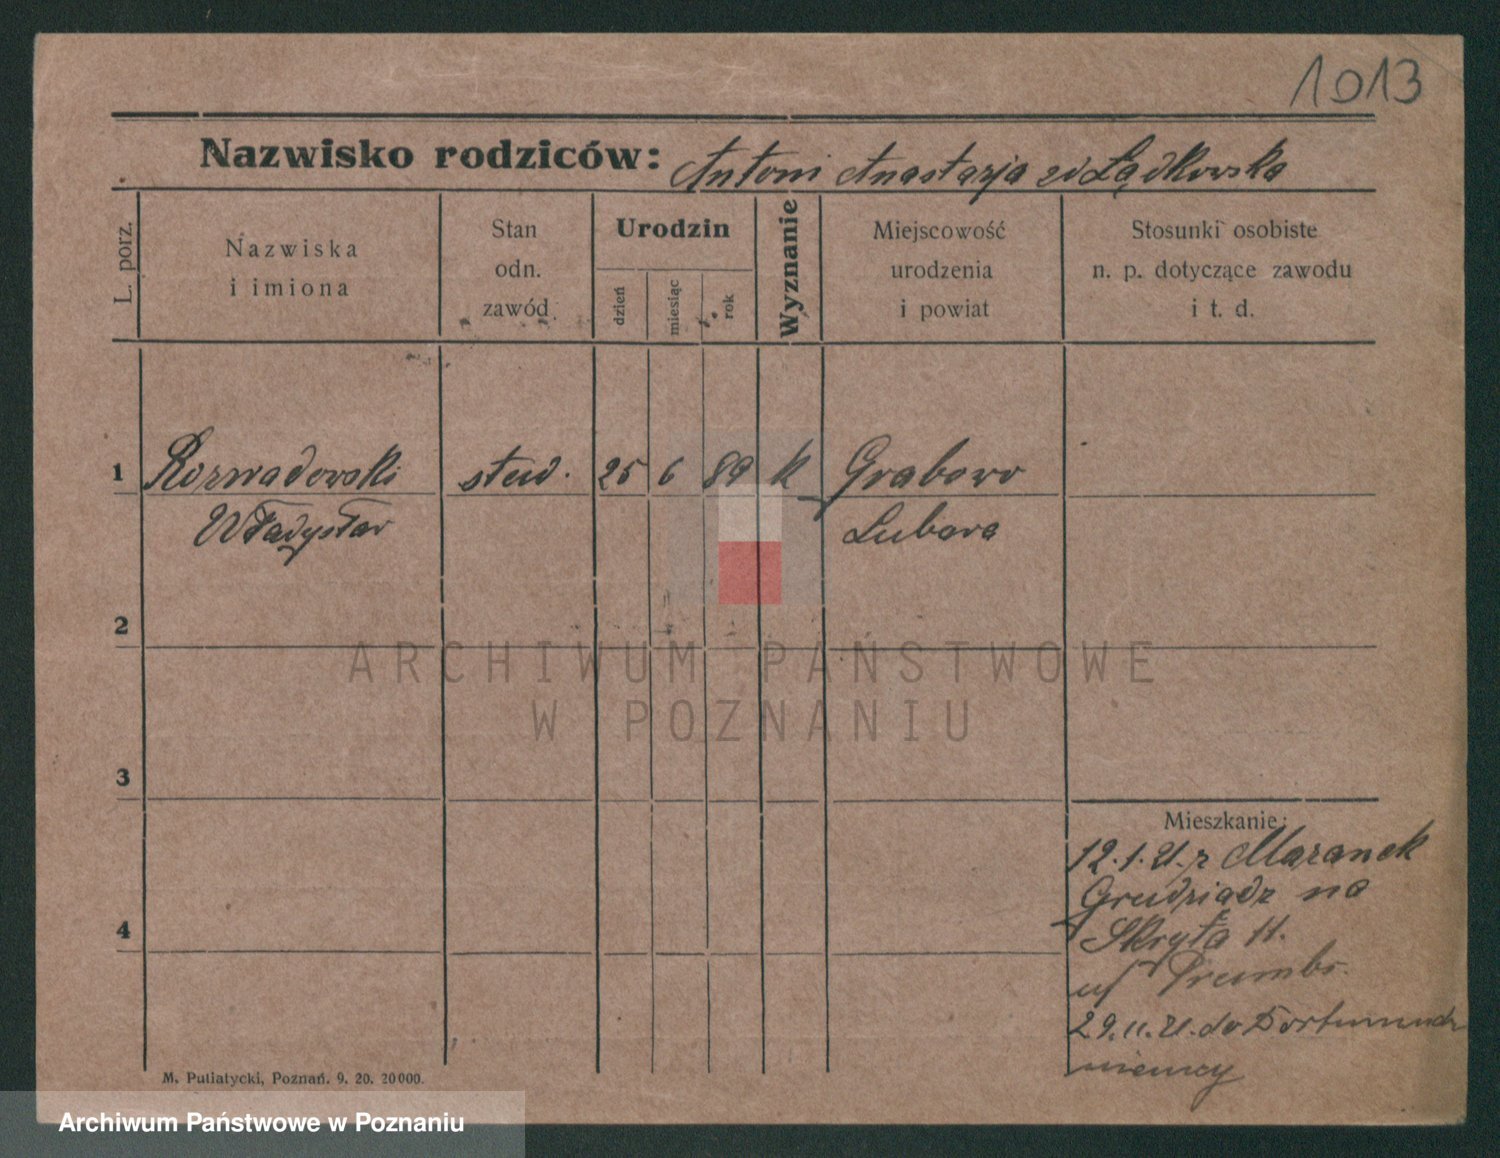 1013
Nazwisko rodziców: Antoni Anastazja zd Lądkowska
L. porz.
Nazwiska
i imiona
Stan
odn.
zawód
Urodzin
dzień
miesiąc
rok
Wyznanie
Miejscowość
urodzenia
i powiat
Stosunki osobiste
n. p. dotyczące zawodu
i t. d.
1 Rozwadowski stud. 25 6 89 k Grabowo
Władysław Lubawa
2
ARCHIWUM PAŃSTWOWE
W POZNANIU
3
Mieszkanie:
12.1.21. z Mazanek
Grudziądz na
4 Skryta 11.
29.11.21. do Dortmund
niemcy
M. Putiatycki, Poznań. 9. 20. 20000.
Archiwum Państwowe w Poznaniu